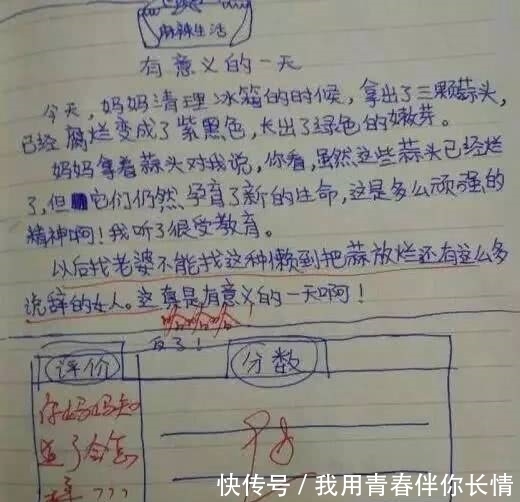 麻辣生活
有意义的一天
今天，妈妈清理冰箱的时候，拿出了三颗蒜头，
已经腐烂变成了紫黑色，长出了绿色的嫩芽。
妈妈拿着蒜头对我说，你看，虽然这些蒜头已经烂
了，但它们仍然孕育了新的生命，这是多么顽强的
精神啊！我听了很受教育。
以后找老婆不能找这种懒到把蒜放烂还有这么多
说辞的女人。这真是有意义的一天啊！
哈哈哈
反了！
评价
分数
你妈妈知
道了会怎
样???
快传号/我用青春伴你长情